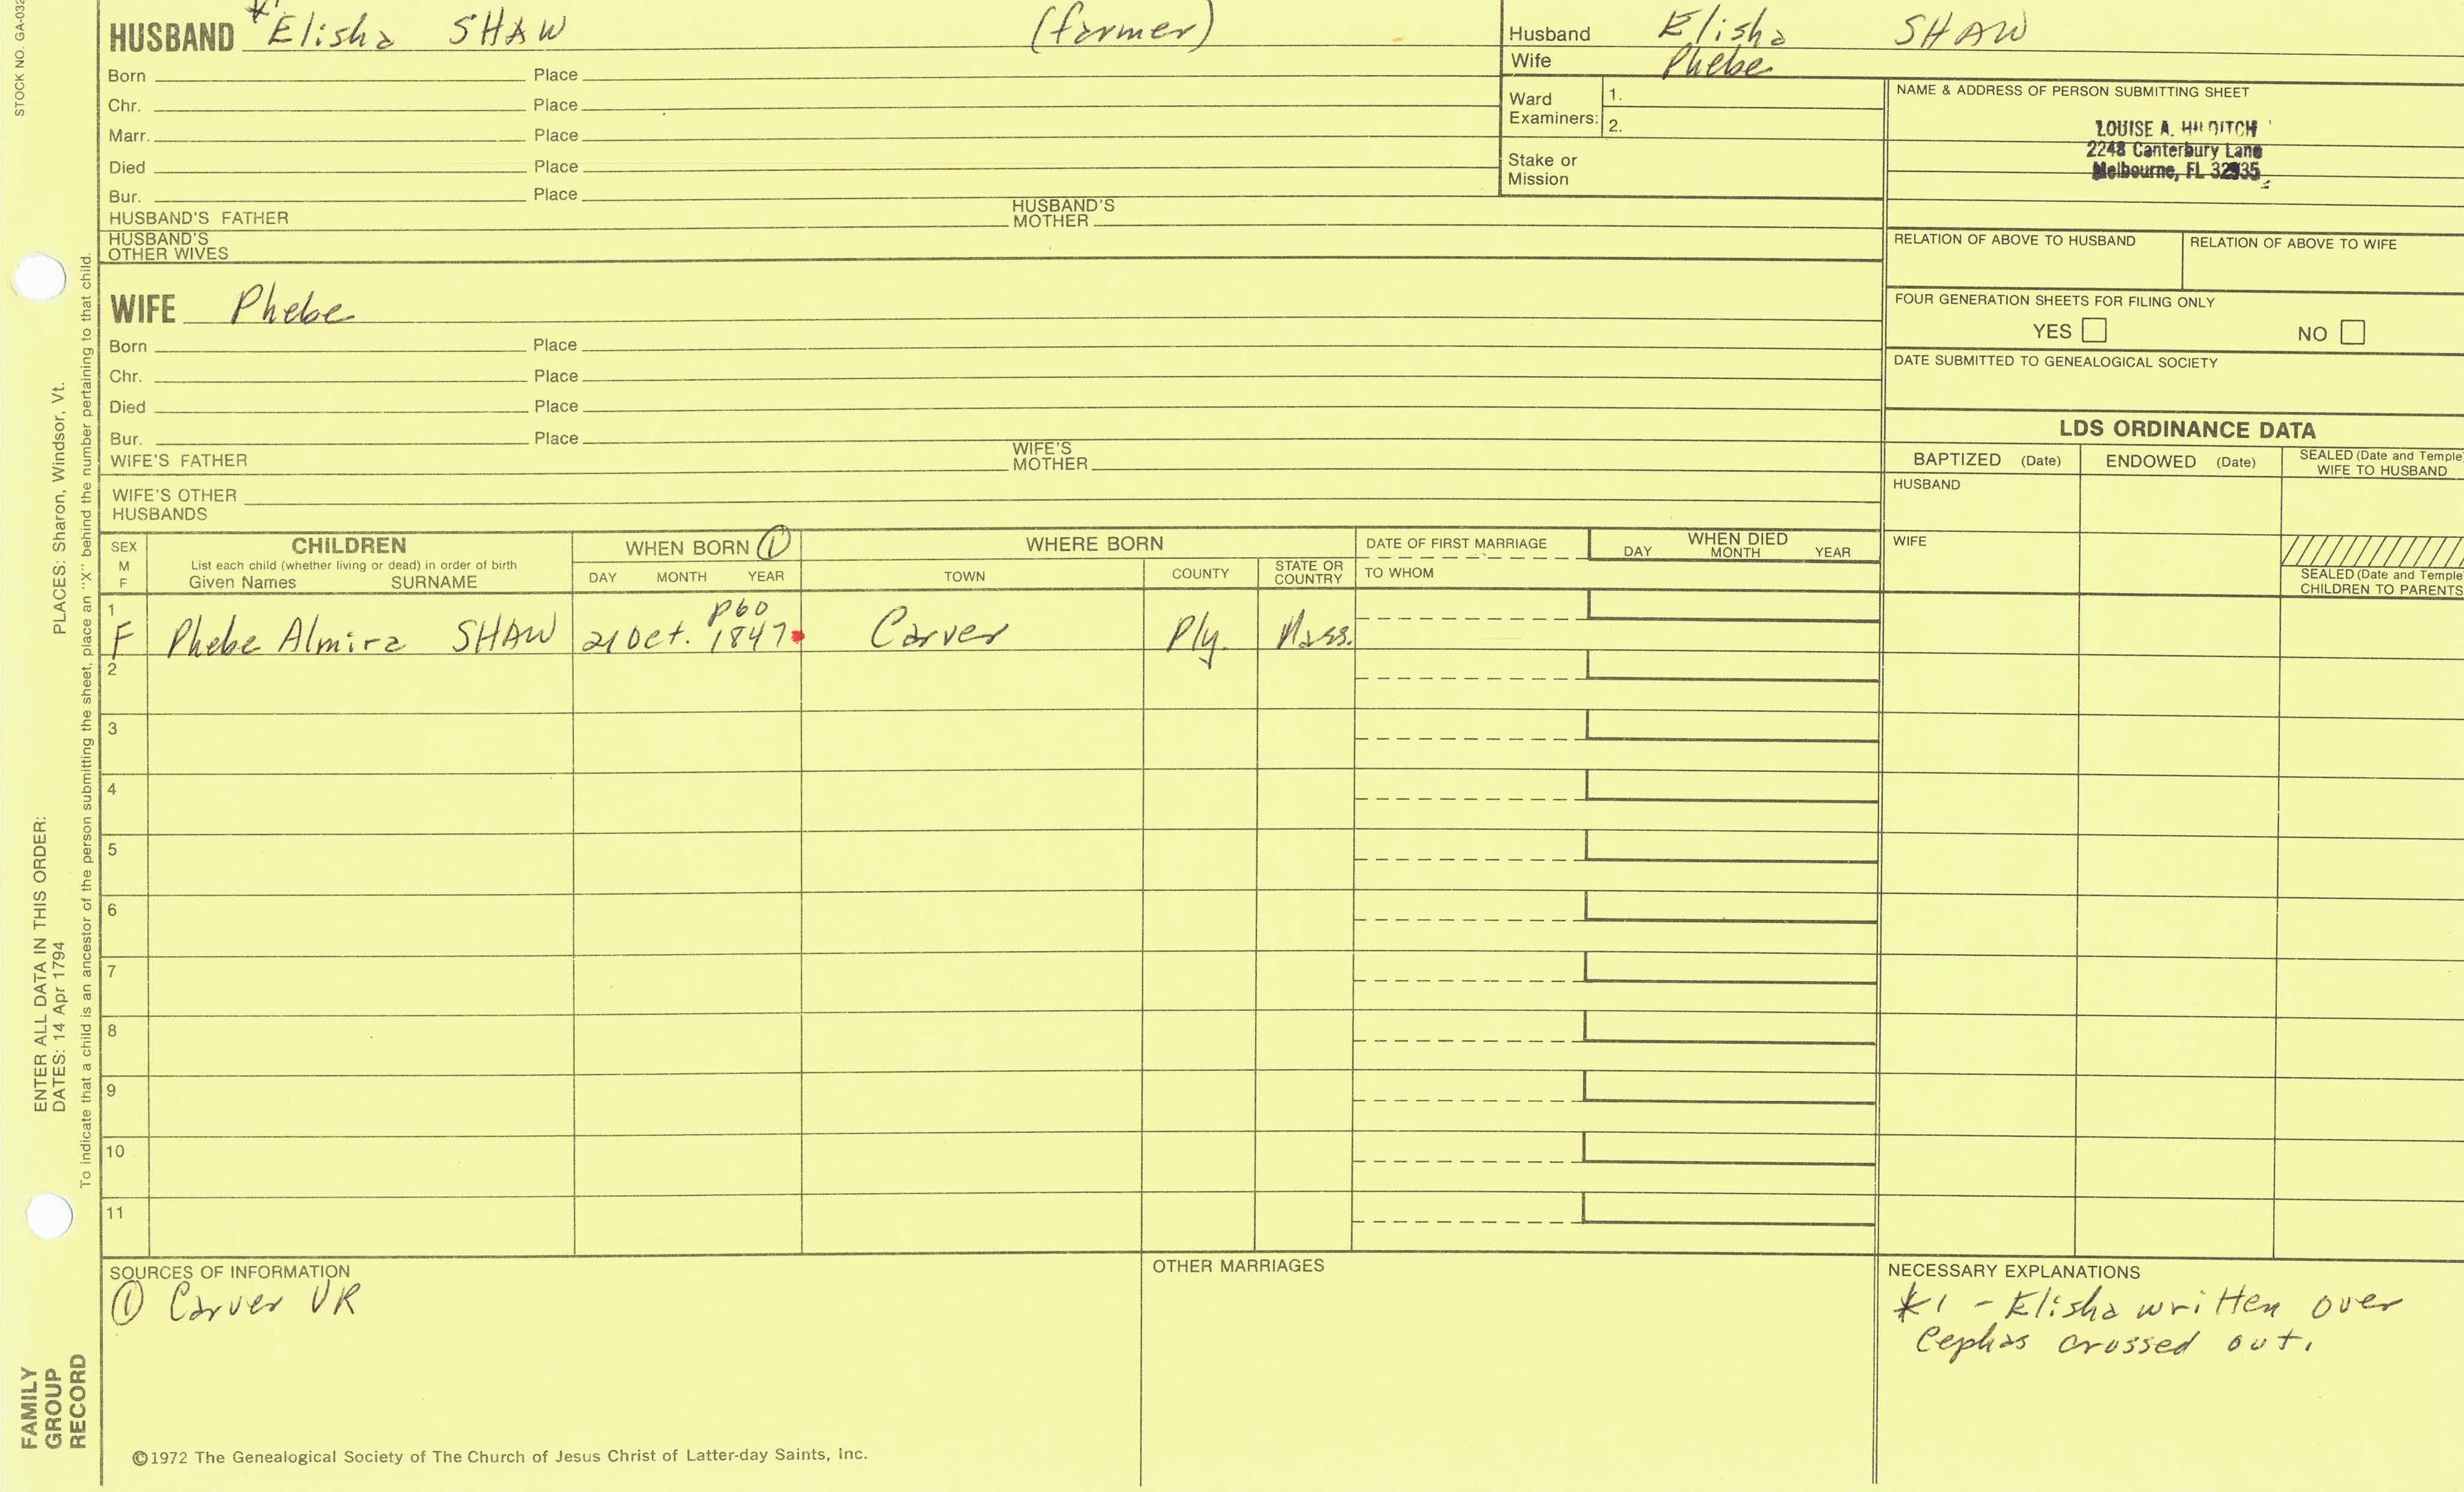 STOCK NO. GA-032
HUSBAND *1 Elisha SHAW (farmer)
Born Place
Chr. Place
Marr. Place
Died Place
Bur. Place
HUSBAND'S FATHER HUSBAND'S MOTHER
HUSBAND'S OTHER WIVES
Husband Elisha SHAW
Wife Phebe
Ward Examiners: 1.
2.
Stake or Mission
NAME & ADDRESS OF PERSON SUBMITTING SHEET
LOUISE A. HILDITCH
2248 Canterbury Lane
Melbourne, FL 32935
RELATION OF ABOVE TO HUSBAND RELATION OF ABOVE TO WIFE
FOUR GENERATION SHEETS FOR FILING ONLY
YES NO
DATE SUBMITTED TO GENEALOGICAL SOCIETY
WIFE Phebe
Born Place
Chr. Place
Died Place
Bur. Place
WIFE'S FATHER WIFE'S MOTHER
WIFE'S OTHER HUSBANDS
LDS ORDINANCE DATA
BAPTIZED (Date) ENDOWED (Date) SEALED (Date and Temple) WIFE TO HUSBAND
HUSBAND
WIFE
SEALED (Date and Temple) CHILDREN TO PARENTS
SEX M F
CHILDREN
List each child (whether living or dead) in order of birth
Given Names SURNAME
WHEN BORN ①
DAY MONTH YEAR
WHERE BORN
TOWN COUNTY STATE OR COUNTRY
DATE OF FIRST MARRIAGE
TO WHOM
WHEN DIED
DAY MONTH YEAR
1
p60
F Phebe Almira SHAW 21 Oct. 1847 Carver Ply. Mass.
2
3
4
5
6
7
8
9
10
11
SOURCES OF INFORMATION
① Carver VR
OTHER MARRIAGES
NECESSARY EXPLANATIONS
*1 - Elisha written over
Cephas crossed out.
©1972 The Genealogical Society of The Church of Jesus Christ of Latter-day Saints, Inc.
FAMILY
GROUP
RECORD
ENTER ALL DATA IN THIS ORDER:
DATES: 14 Apr 1794 PLACES: Sharon, Windsor, Vt.
To indicate that a child is an ancestor of the person submitting the sheet, place an "X" behind the number pertaining to that child.